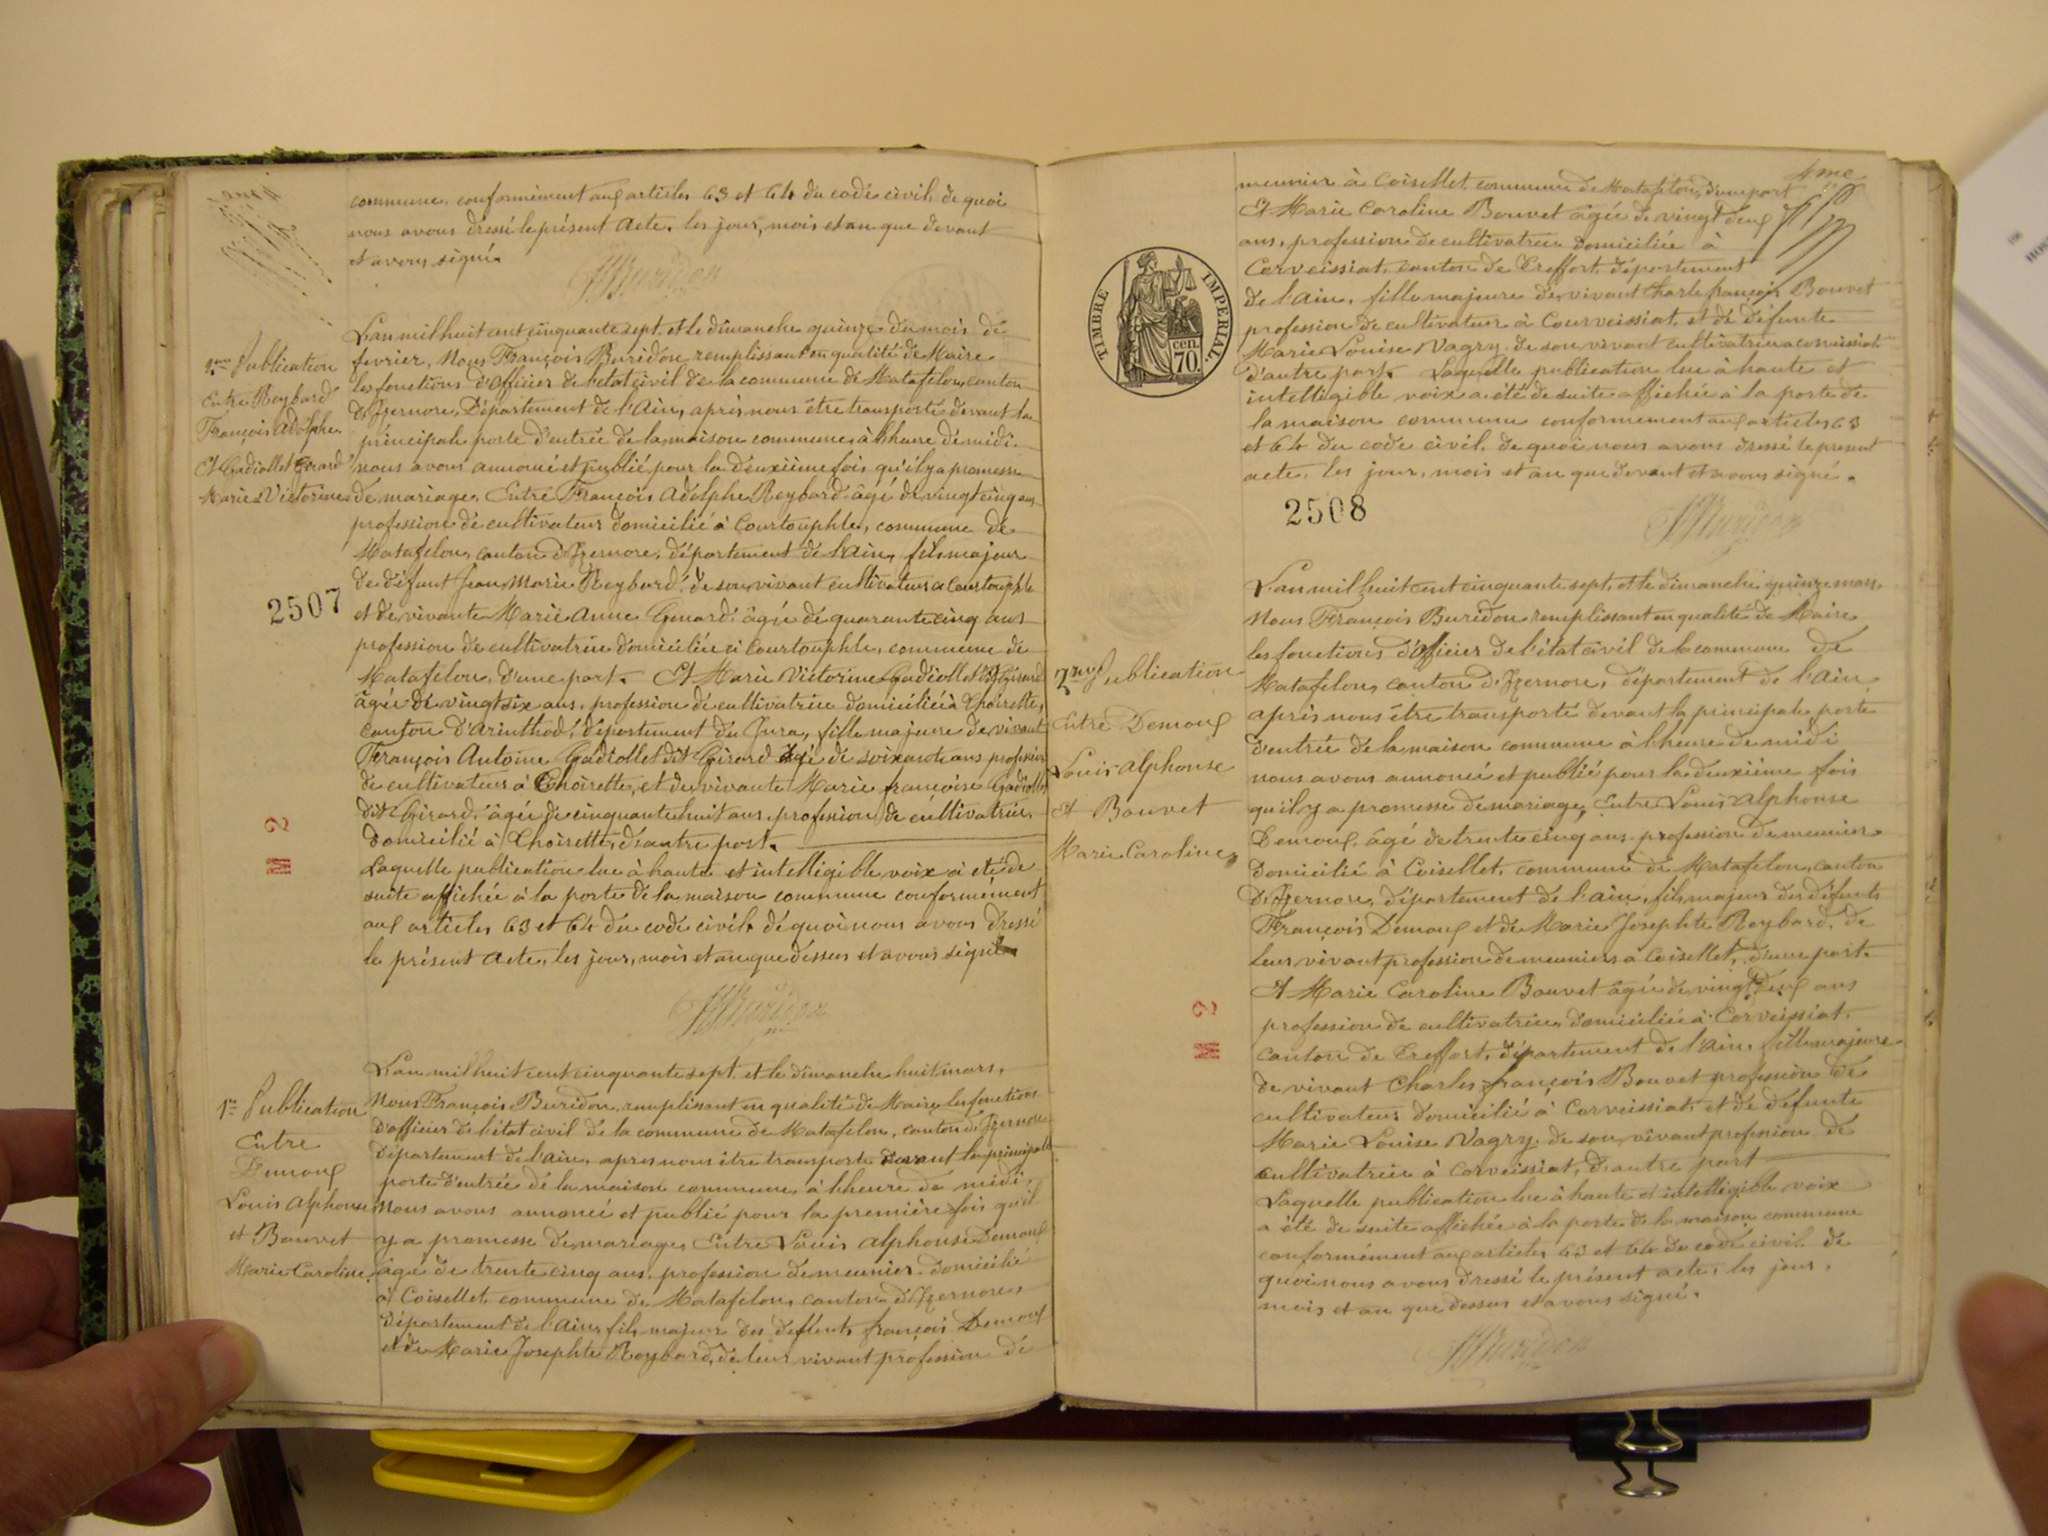 commune, conformément aux articles 63 et 64 du code civil, de quoi
nous avons dressé le présent acte, les jour, mois et an que devant
et avons signé.
FBuridon
2me Publication
Entre Reybard
François Adolphe
Et Gadiollet Girard
Marie Victorine
L'an mil huit cent cinquante sept, et le dimanche quinze du mois de
fevrier, Nous François Buridon remplissant en qualité de Maire
les fonctions d'officier de l'etat civil de la commune de Matafelon, canton
d'Izernore, Département de l'Ain, après nous être transporté devant la
principale porte d'entrée de la maison commune, à l'heure de midi
nous avons annoncé et publié pour la deuxième fois qu'il y a promesse
de mariage, Entre François Adolphe Reybard âgé de vingt cinq ans,
profession de cultivateur domicilié à Courtouphle, commune de
Matafelon, canton d'Izernore, département de l'Ain, fils majeur
de défunt Jean Marie Reybard, de son vivant cultivateur à Courtouphle
et de vivante Marie Anne Genard âgée de quarante cinq ans
profession de cultivatrice domiciliée à Courtouphle, commune de
Matafelon, d'une part. Et Marie Victorine Gadiollet dit Girard
âgée de vingt six ans, profession de cultivatrice domiciliée à Thoirette,
canton d'Arinthod, département du Jura, fille majeure de vivant
François Antoine Gadiollet dit Girard âgé de soixante ans profession
de cultivateur à Thoirette, et de vivante Marie françoise Gadiollet
dit Girard, âgée de cinquante huit ans, profession de cultivatrice,
domicilié à Thoirette, d'autre part.
Laquelle publication lue à haute et intelligible voix a été de
suite affichée à la porte de la maison commune conformément
aux articles 63 et 64 du code civil, de quoi nous avons dressé
le présent acte, les jour, mois et an que dessus et avons signé
2507
M 2
FBuridon
1re Publication
Entre
Demoux
Louis Alphonse
et Bouvet
Marie Caroline
L'an mil huit cent cinquante sept, et le dimanche huit mars,
Nous François Buridon, remplissant en qualité de Maire les fonctions
d'officier de l'état civil de la commune de Matafelon, canton d'Izernore
département de l'Ain, apres nous être transporté devant la principale
porte d'entrée de la maison commune, à l'heure de midi,
Nous avons annoncé et publié pour la première fois qu'il
y a promesse de mariage, Entre Louis Alphonse Demoux
âgé de trente cinq ans, profession de meunier, domicilié
à Coisellet commune de Matafelon, canton d'Izernore,
département de l'Ain, fils majeur des deffunts françois Demoux
et de Marie Josephte Reybard, de leur vivant profession de
4me
meunier à Coisellet commune de Matafelon, d'une part
Et Marie Caroline Bouvet âgée de vingt deux
ans, profession de cultivatrice domiciliée à
Corveissiat, canton de Treffort, département
de l'Ain, fille majeure de vivant Charle françois Bouvet
profession de cultivateur à Courveissiat, et de défunte
Marie Louise Vagry, de son vivant cultivatrice a corveissiat
d'autre part. Laquelle publication lue à haute et
intelligible voix a été de suite affichée à la porte de
la maison commune conformement aux articles 63
et 64 du code civil, de quoi nous avons dressé le present
acte, les jour, mois et an que devant et avons signé.
TIMBRE IMPERIAL.
70. cen.
2508
FBuridon
2me Publication
Entre Demoux
Louis alphonse
Et Bouvet
Marie Caroline
L'an mil huit cent cinquante sept, et le dimanche quinze mars,
Nous François Buridon remplissant en qualité de Maire
les fonctions d'officier de l'état civil de la commune de
Matafelon, canton d'Izernore, département de l'Ain,
après nous être transporté devant la principale porte
d'entrée de la maison commune à l'heure de midi
nous avons annoncé et publié pour la deuxième fois
qu'il y a promesse de mariage, Entre Louis Alphonse
Demoux, âgé de trente cinq ans profession de meunier
domicilié à Coisellet, commune de Matafelon, canton
d'Izernore, département de l'ain, fils majeur des défunts
François Demoux et de Marie Josephte Reybard, de
leur vivant profession de meuniers à Coisellet, d'une part.
Et Marie Caroline Bouvet âgée de vingt deux ans
profession de cultivatrice, domiciliée à Corveissiat,
canton de Treffort, département de l'Ain, fille majeure
de vivant Charles françois Bouvet profession de
cultivateur domicilié à Corveissiat, et de défunte
Marie Louise Vagry, de son vivant profession de
cultivatrice à Corveissiat, d'autre part
Laquelle publication lue à haute et intelligible voix
a été de suite affichée à la porte de la maison commune
conformément aux articles 63 et 64 du code civil, de
quoi nous avons dressé le présent acte, les jour,
mois et an que dessus et avons signé.
M 2
FBuridon